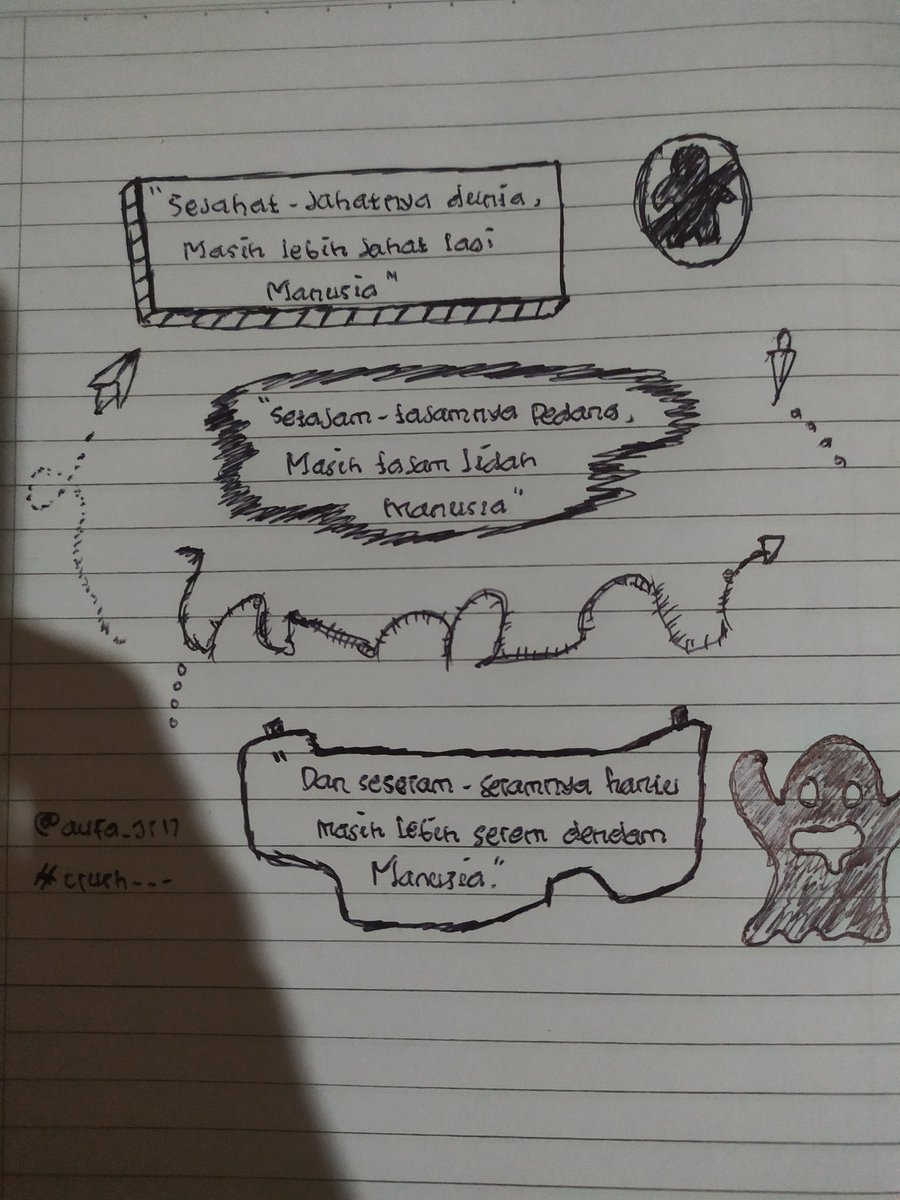 "Sejahat-Jahatnya dunia,
Masih lebih Jahat lagi
Manusia"
"Setajam-tajamnya Pedang,
Masih tajam lidah
manusia"
"Dan seseram-seramnya hantu
masih lebih serem dendam
Manusia."
#crush---